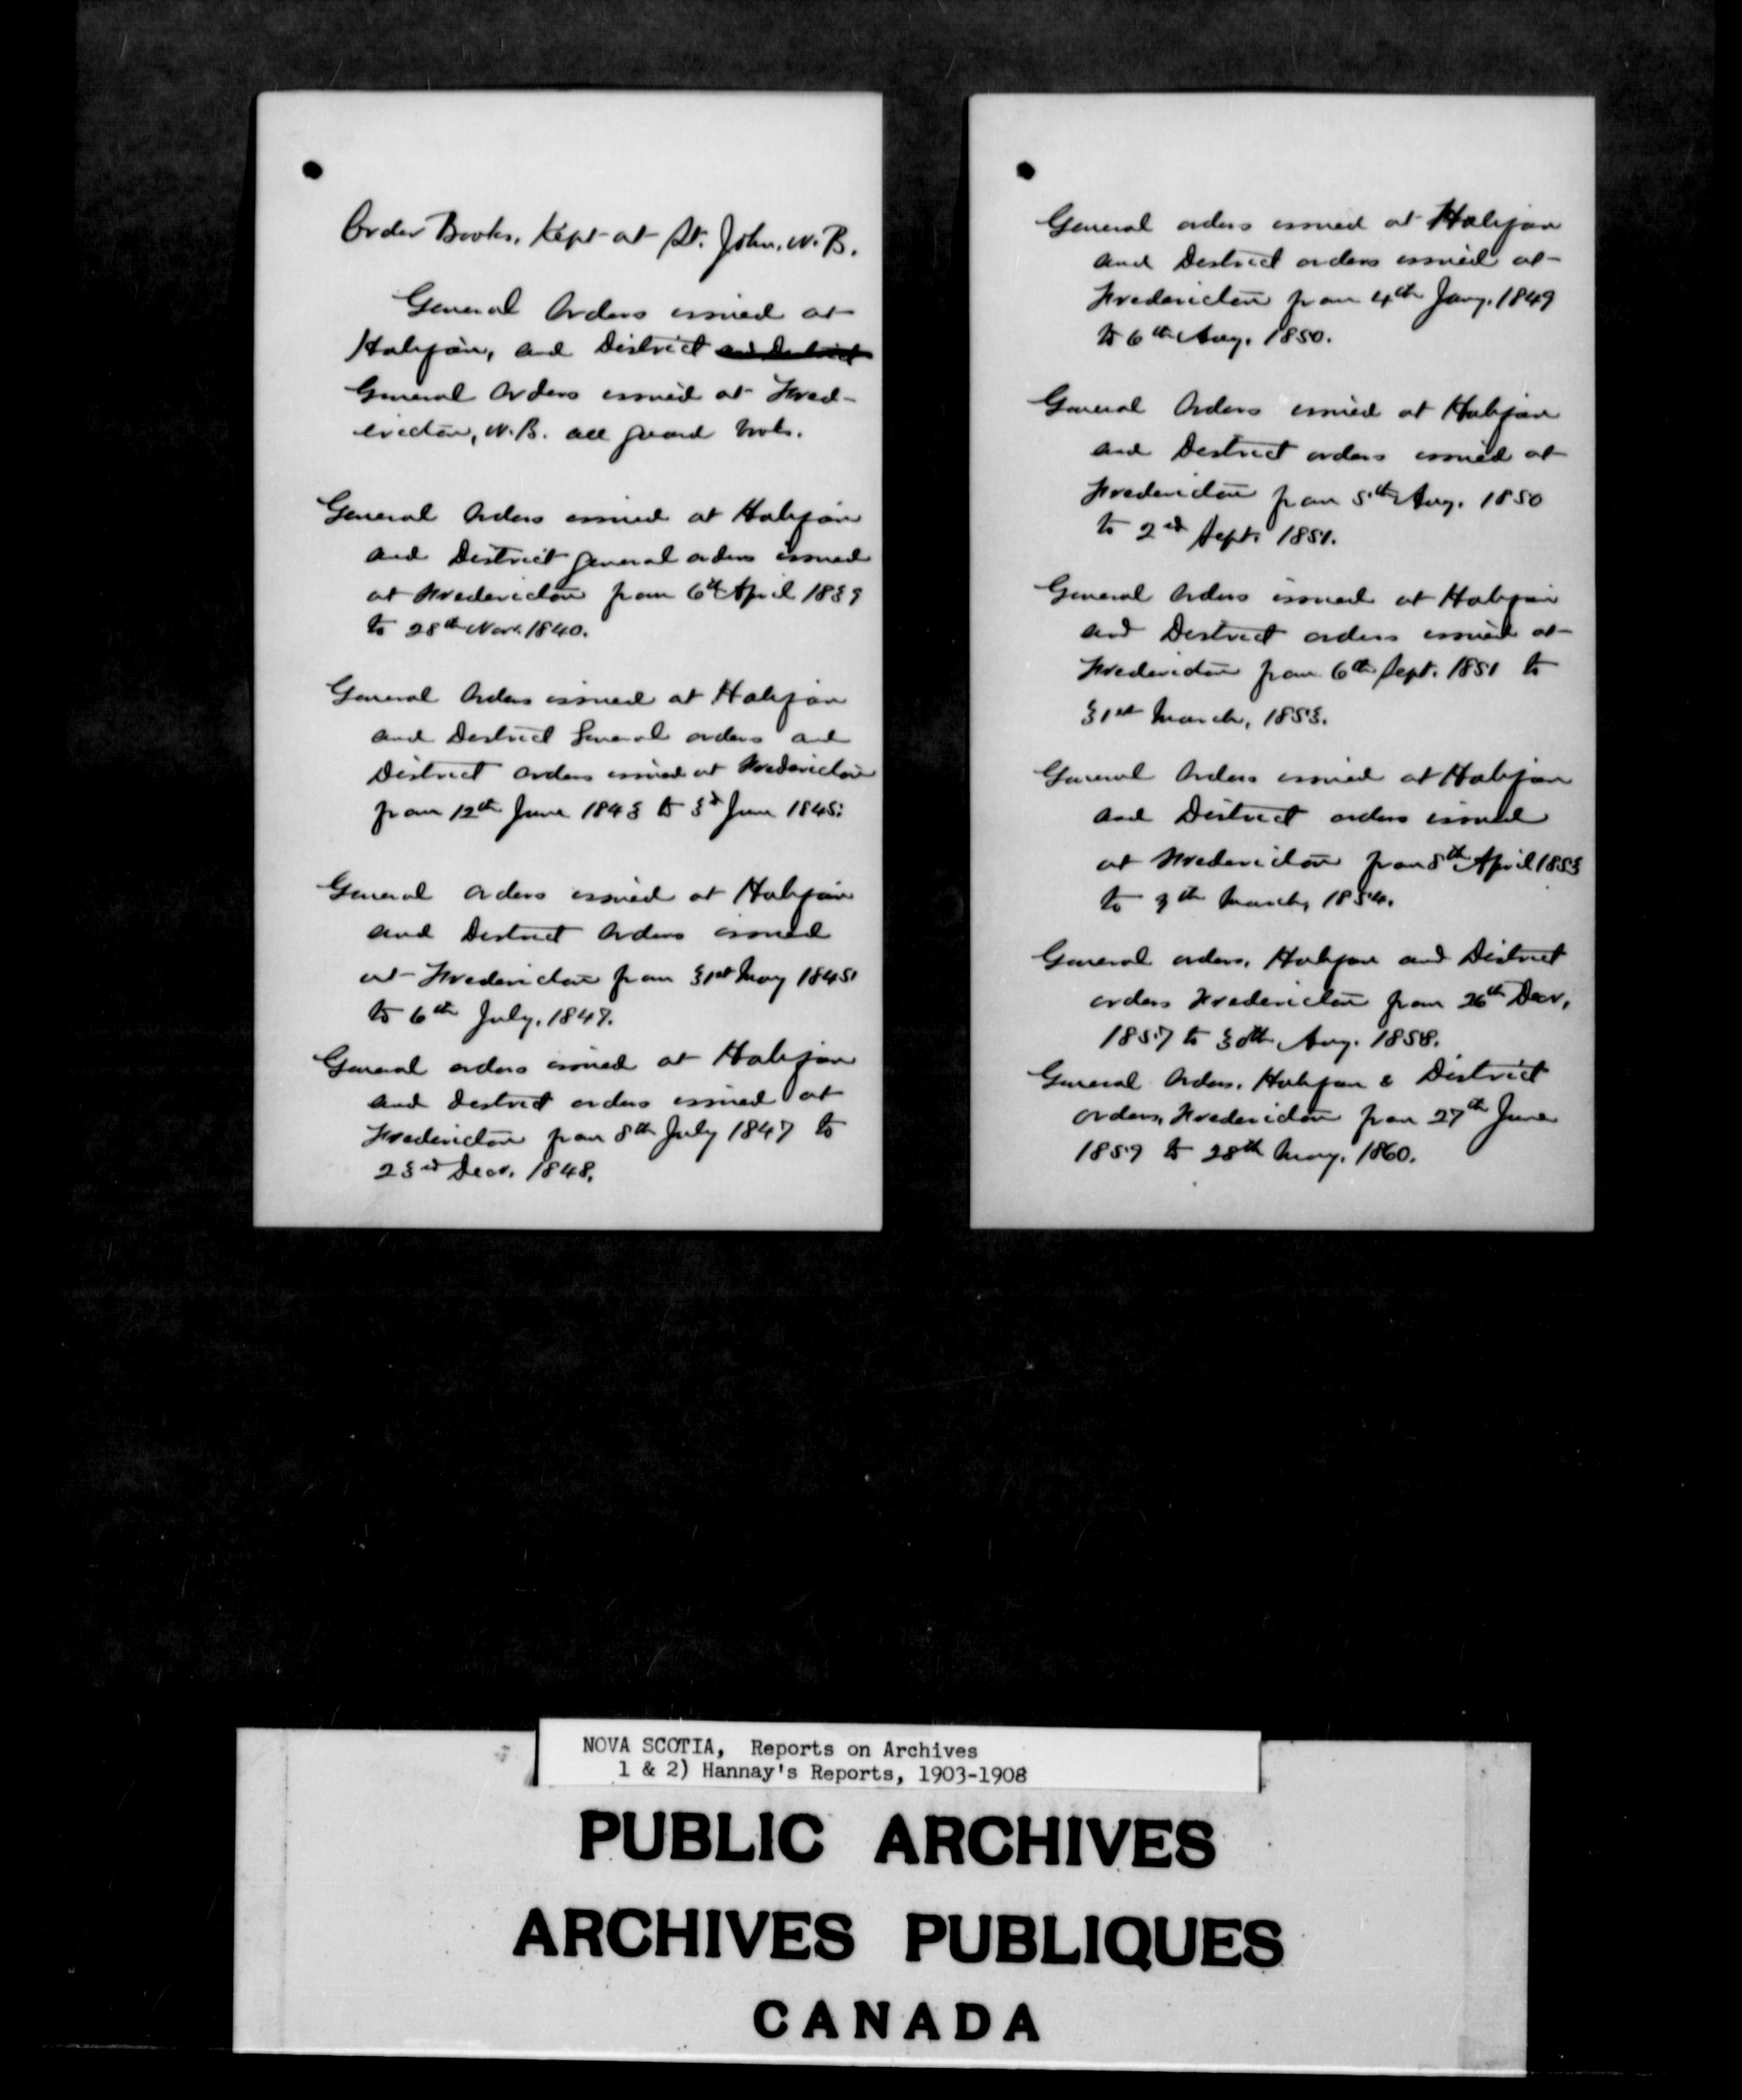 Order Books, Kept at St. John, N.B.
General Orders issued at
Halifax, and District and District
General Orders issued at Fred-
ericton, N.B. all guard books.
General Orders issued at Halifax
and District general orders issued
at Fredericton from 6th April 1839
to 28th Nov. 1840.
General Orders issued at Halifax
and District General orders and
District orders issued at Fredericton
from 12th June 1843 to 3d June 1845.
General orders issued at Halifax
and District Orders issued
at Fredericton from 31st May 1845
to 6th July, 1847.
General orders issued at Halifax
and District orders issued at
Fredericton from 8th July 1847 to
23rd Decr. 1848.
General orders issued at Halifax
and District orders issued at
Fredericton from 4th Jany. 1849
to 6th Aug. 1850.
General Orders issued at Halifax
and District orders issued at
Fredericton from 5th Aug. 1850
to 2nd Sept. 1851.
General Orders issued at Halifax
and District orders issued at
Fredericton from 6th Sept. 1851 to
31st March, 1853.
General Orders issued at Halifax
and District orders issued
at Fredericton from 8th April 1853
to 9th March, 1854.
General orders, Halifax and District
orders Fredericton from 26th Decr.
1857 to 30th Aug. 1858.
General Orders, Halifax & District
orders, Fredericton from 27th June
1859 to 28th May, 1860.
NOVA SCOTIA, Reports on Archives
1 & 2) Hannay's Reports, 1903-1908
PUBLIC ARCHIVES
ARCHIVES PUBLIQUES
CANADA